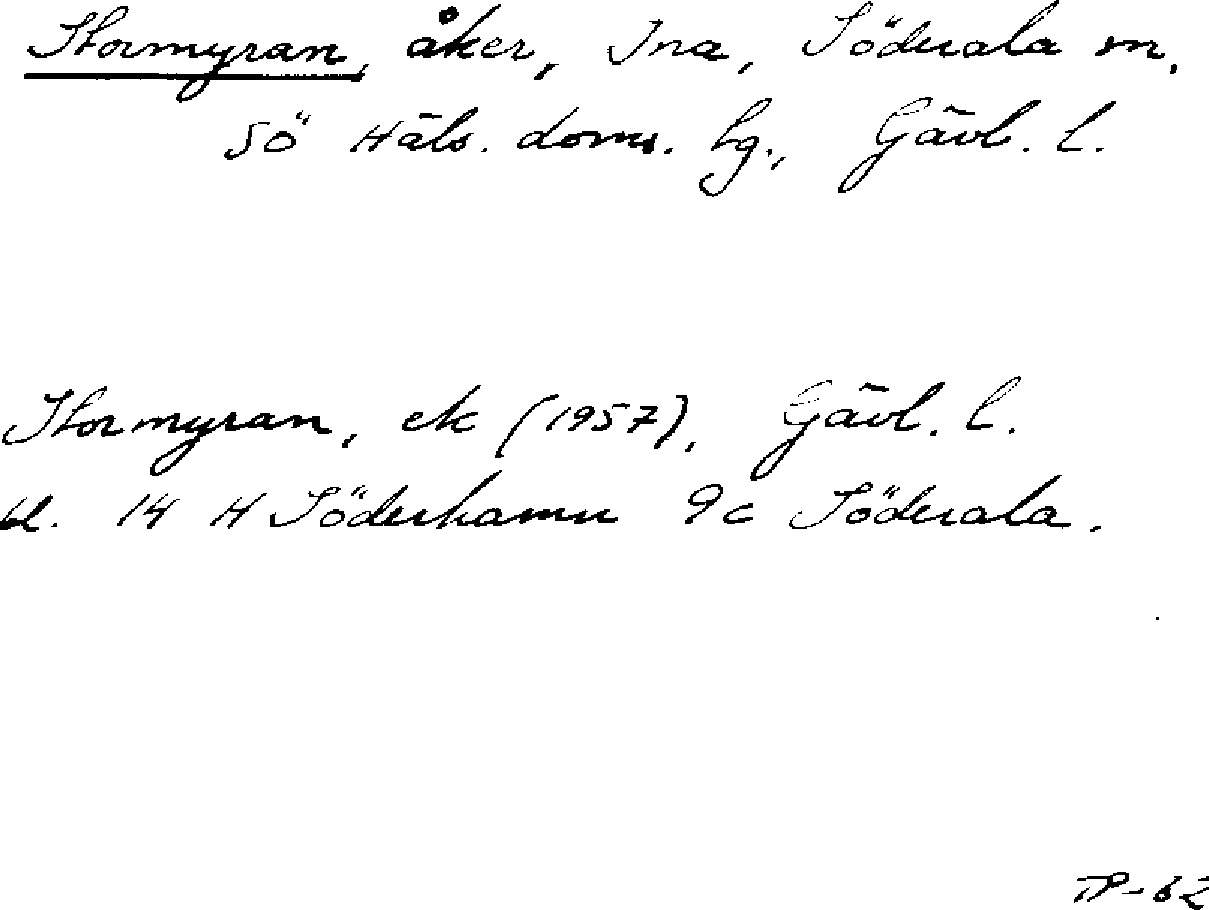 Stormyran, åker, Ina, Söderala sn,
SÖ Häls. doms. hg., Gävl. l.
Stormyran, ek (1957), Gävl. l.
bl. 14 H Söderhamn 9c Söderala.
TP-62